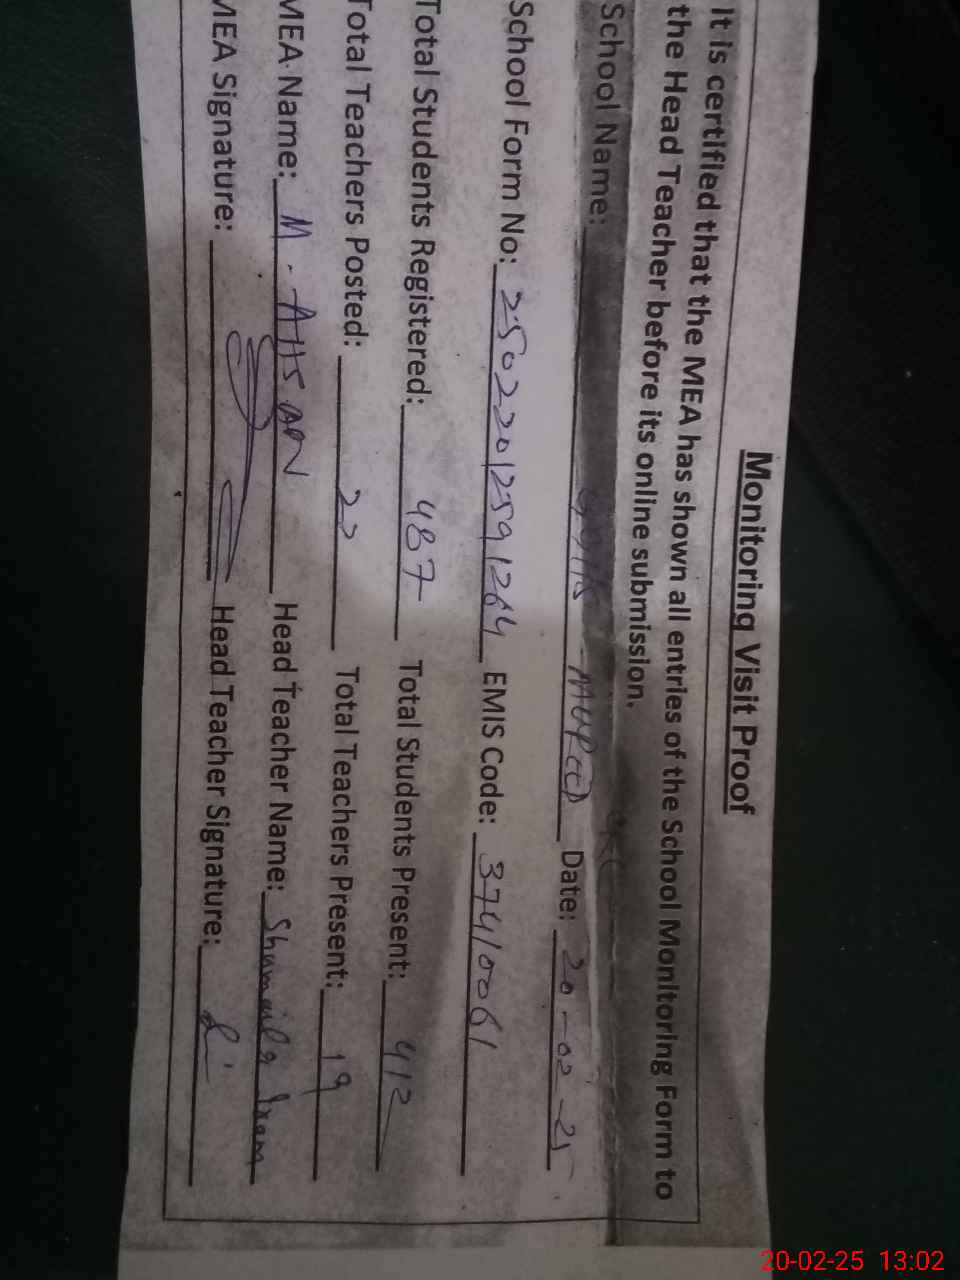 Monitoring Visit Proof
It is certified that the MEA has shown all entries of the School Monitoring Form to
the Head Teacher before its online submission.
School Name: GGHS - MUREED Date: 20-02-25
School Form No: 25022012591264 EMIS Code: 37410061
Total Students Registered: 487 Total Students Present: 412
Total Teachers Posted: 22 Total Teachers Present: 19
MEA Name: M-AHSAN Head Teacher Name: Shumaila Iram
MEA Signature: Head Teacher Signature:
20-02-25 13:02